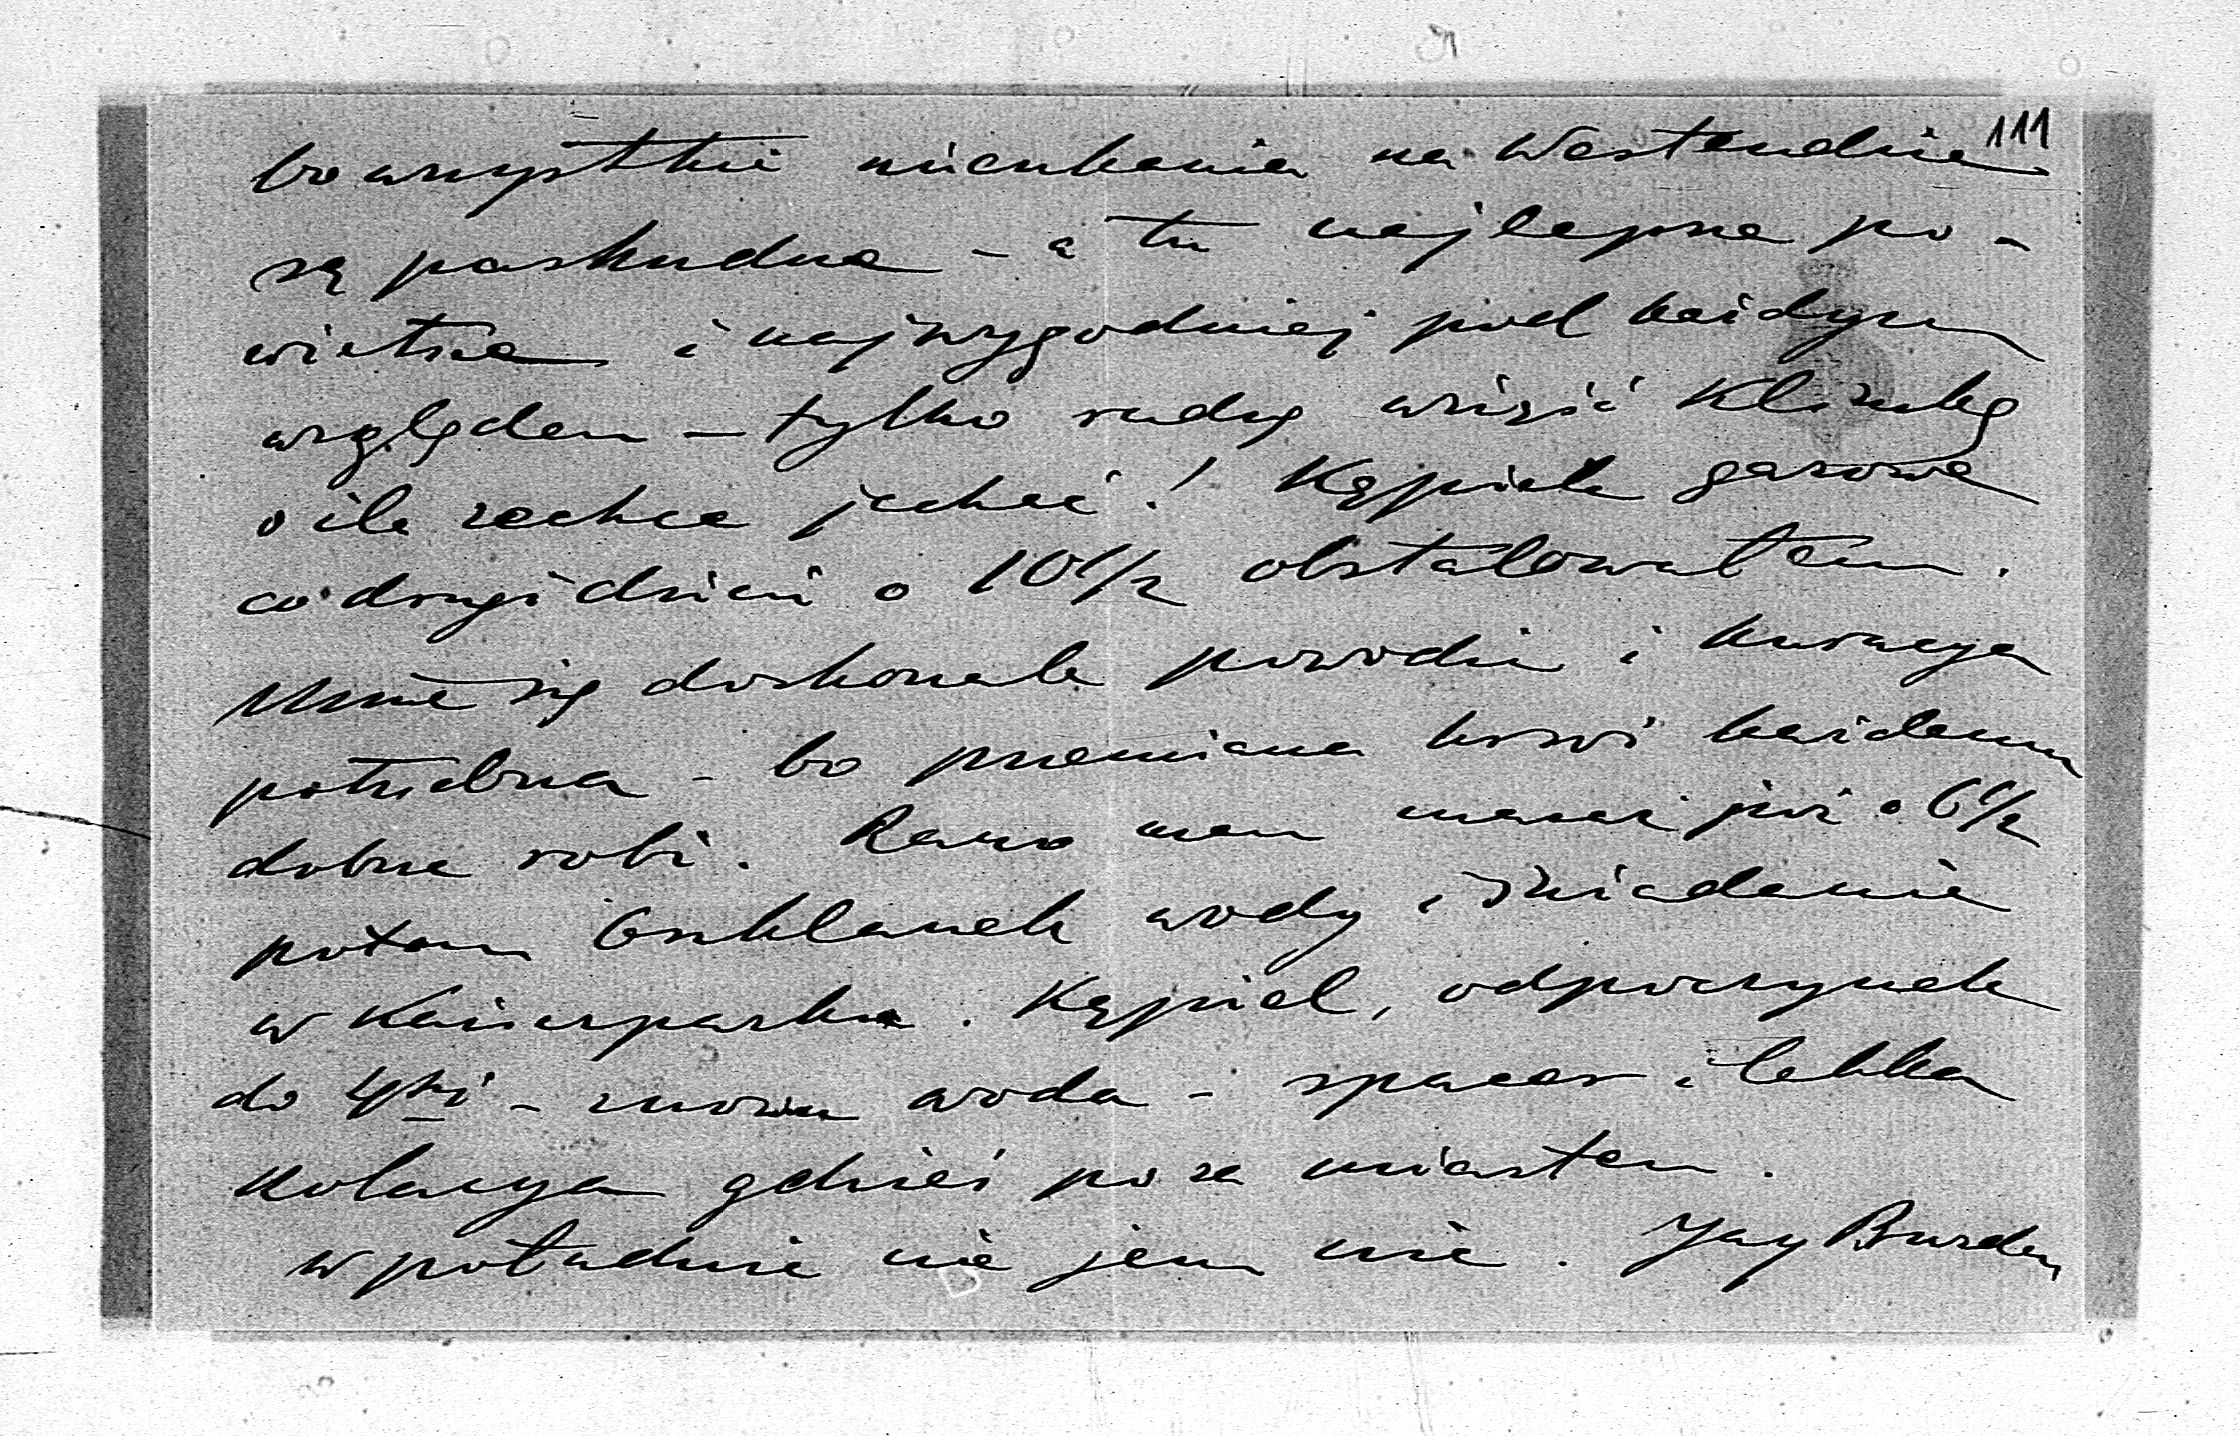 111
bo wszystkie mieszkania na Westendzie
są paskudne - a tu najlepsze po-
wietrze i najwygodniej pod każdym
względem - tylko radzę wziąść Klimkę
o ile zechce jechać! Kąpiele gazowe
co drugi dzień o 10 1/2 obstalowałem.
Mnie się doskonale powodzi i kuracya
potrzebna - bo przemiana krwi każdemu
dobrze robi. Rano man masaż już o 6 1/2
potem 6 szklanek wody i śniadanie
w Kaiserparku. Kąpiel, odpoczynek
do 4tej - znowu woda - spacer i lekka
kolacya gdzieś poza miastem.
w południe nie jem nic. Jay Burden